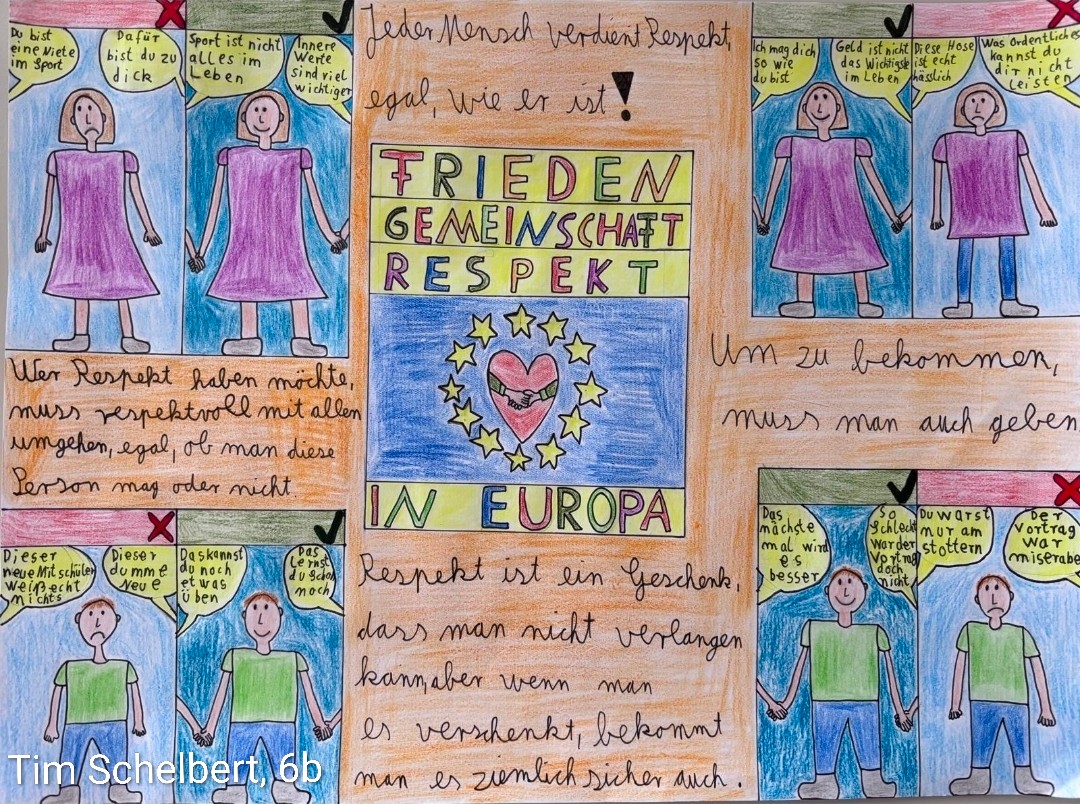 Du bist
eine Niete
im Sport
Dafür
bist du zu
dick
Sport ist nicht
alles im
Leben
Innere
Werte
sind viel
wichtiger
Jeder Mensch verdient Respekt,
egal, wie er ist!
Ich mag dich
so wie
du bist
Geld ist nicht
das Wichtigste
im Leben
Diese Hose
ist echt
hässlich
Was Ordentliches
kannst du
dir nicht
leisten
FRIEDEN
GEMEINSCHAFT
RESPEKT
IN EUROPA
Wer Respekt haben möchte,
muss respektvoll mit allen
umgehen, egal, ob man diese
Person mag oder nicht.
Um zu bekommen,
muss man auch geben
Dieser
neue Mitschüler
weiß echt
nichts
Dieser
dumme
Neue
Das kannst
du noch
etwas
üben
Das
lernst
du schon
noch
Respekt ist ein Geschenk,
dass man nicht verlangen
kann, aber wenn man
es verschenkt, bekommt
man es ziemlich sicher auch.
Das
nächste
mal wird
es
besser
So
Schlecht
war der
Vortrag
doch
nicht
Du warst
nur am
stottern
Der
Vortrag
war
miserabel
Tim Schelbert, 6b